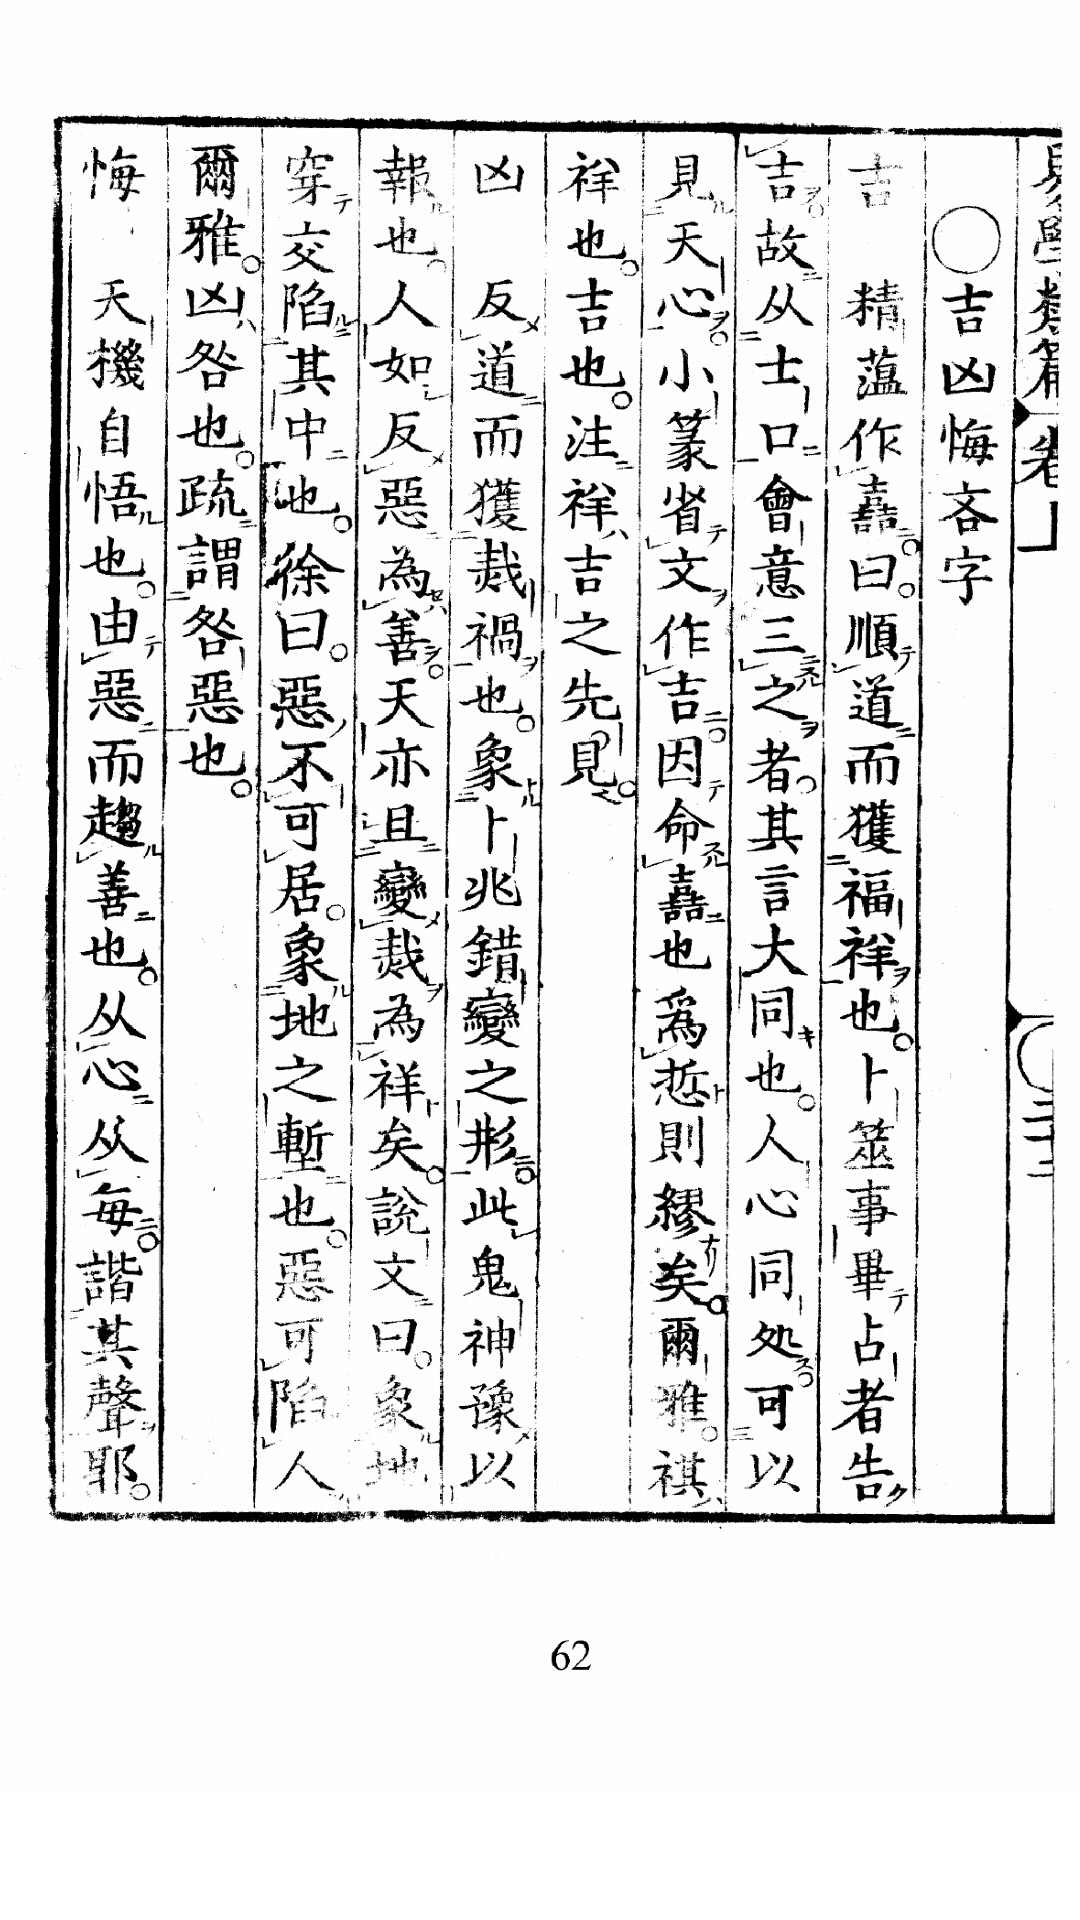 易學類篇 卷上 二十二
○吉凶悔吝字
吉 精薀作嚞曰順道而獲福祥也卜筮事畢占者告
吉故从士口會意三之者其言大同也人心同処可以
見天心小篆省文作吉因命嚞也爲悊則繆矣爾雅祺
祥也吉也注祥吉之先見
凶 反道而獲烖禍也象卜兆錯變之形此鬼神豫以
報也人如反惡為善天亦且變烖為祥矣說文曰象地
穿交陷其中也徐曰惡不可居象地之塹也惡可陷人
爾雅凶咎也疏謂咎惡也
悔 天機自悟也由惡而趨善也从心从每諧其聲耶
62